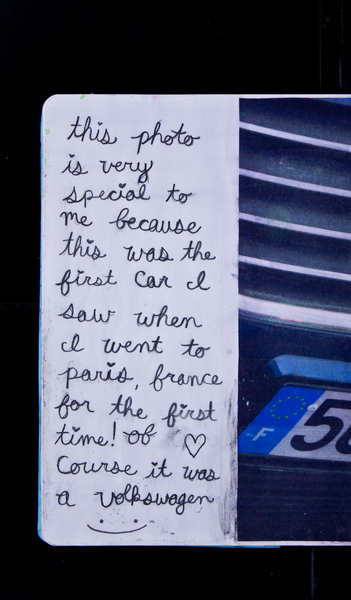 this photo
is very
special to
me because
this was the
first Car I
saw when
I went to
paris, france
for the first
time! Of
Course it was
a volkswagen
F 5